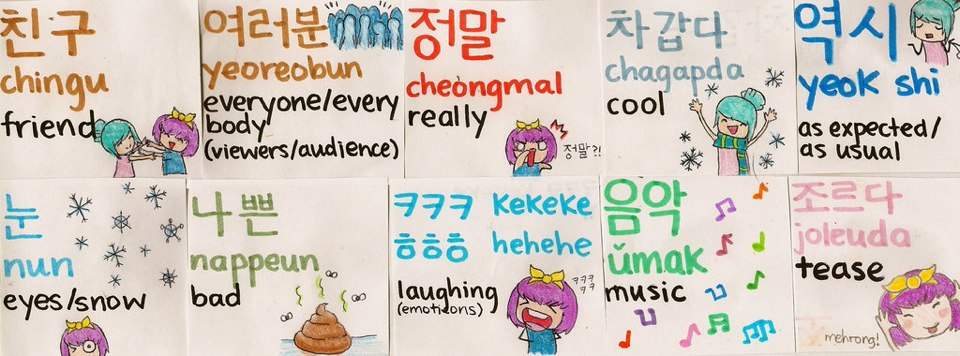 친구
chingu
friend
여러분
yeoreobun
everyone/every
body
(viewers/audience)
정말
cheongmal
really
정말?!
차갑다
chagapda
cool
역시
yeok shi
as expected/
as usual
눈
nun
eyes/snow
나쁜
nappeun
bad
ㅋㅋㅋ kekeke
ㅎㅎㅎ hehehe
laughing
(emoticons)
ㅋㅋㅋ
ㅋㅋ
음악
ŭmak
music
조르다
joleuda
tease
mehrong!